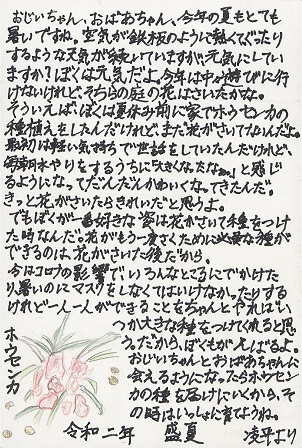 おじいちゃん、おばあちゃん、今年の夏もとても
暑いですね。空気が鉄板のように熱くてぐったり
するような天気が続いていますが、元気にしてい
ますか？ぼくは元気だよ。今年は中が遊びに行
けないけれど、そちらの庭の花はさいたかな。
そういえば、ぼくは夏休み前に家でホウセンカの
種植えをしたんだけれど、まだ花がさいてないんだよ。
最初は軽い気持ちで世話をしていたんだけれど、
毎朝水やりをするうちに「大きくなったなぁ。」と感じ
るようになってだんだんかわいくなってきたんだ。
きっと花がさいたらきれいだと思うよ。
でもぼくが一番好きな姿は花がさいて種をつけ
た時なんだ。花がもう一度さくために必要な種が
できるのは、花がさいた後だから。
今はコロナの影響で、いろんなところにでかけた
り、暑いのにマスクをしなくてはいけなかったりする
けれど一人一人ができることをちゃんとやれば、い
つか大きな種をつけてくれると思
う。だから、ぼくもがんばるよ。
おじいちゃんとおばあちゃんに
会えるようになったらホウセン
カの種を届けにいくから、そ
の時はいっしょに育てようね。
ホウセンカ
令和二年 盛夏 凌平より